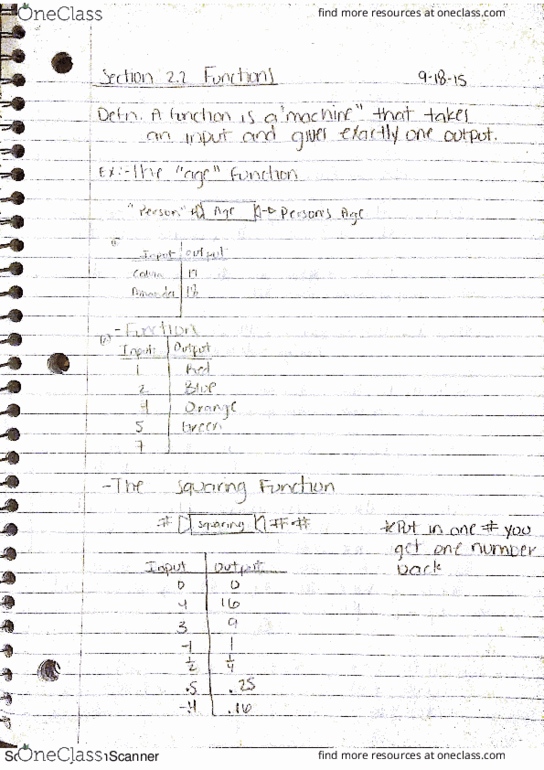 OneClass find more resources at oneclass.com
Section 2.2 Functions 9-18-15
Defn. A function is a "machine" that takes
an input and gives exactly one output.
Ex:-The "age" function
"Person" Age Person's Age
Input Output
17
18
-Function
Input Output
1 Red
2 Blue
4 Orange
5 Green
7
-The squaring Function
# squaring #·#
*Put in one # you
get one number
back
Input Output
0 0
4 16
3 9
-1 1
1/2 1/4
.5 .25
-.4 .16
OneClass Scanner find more resources at oneclass.com